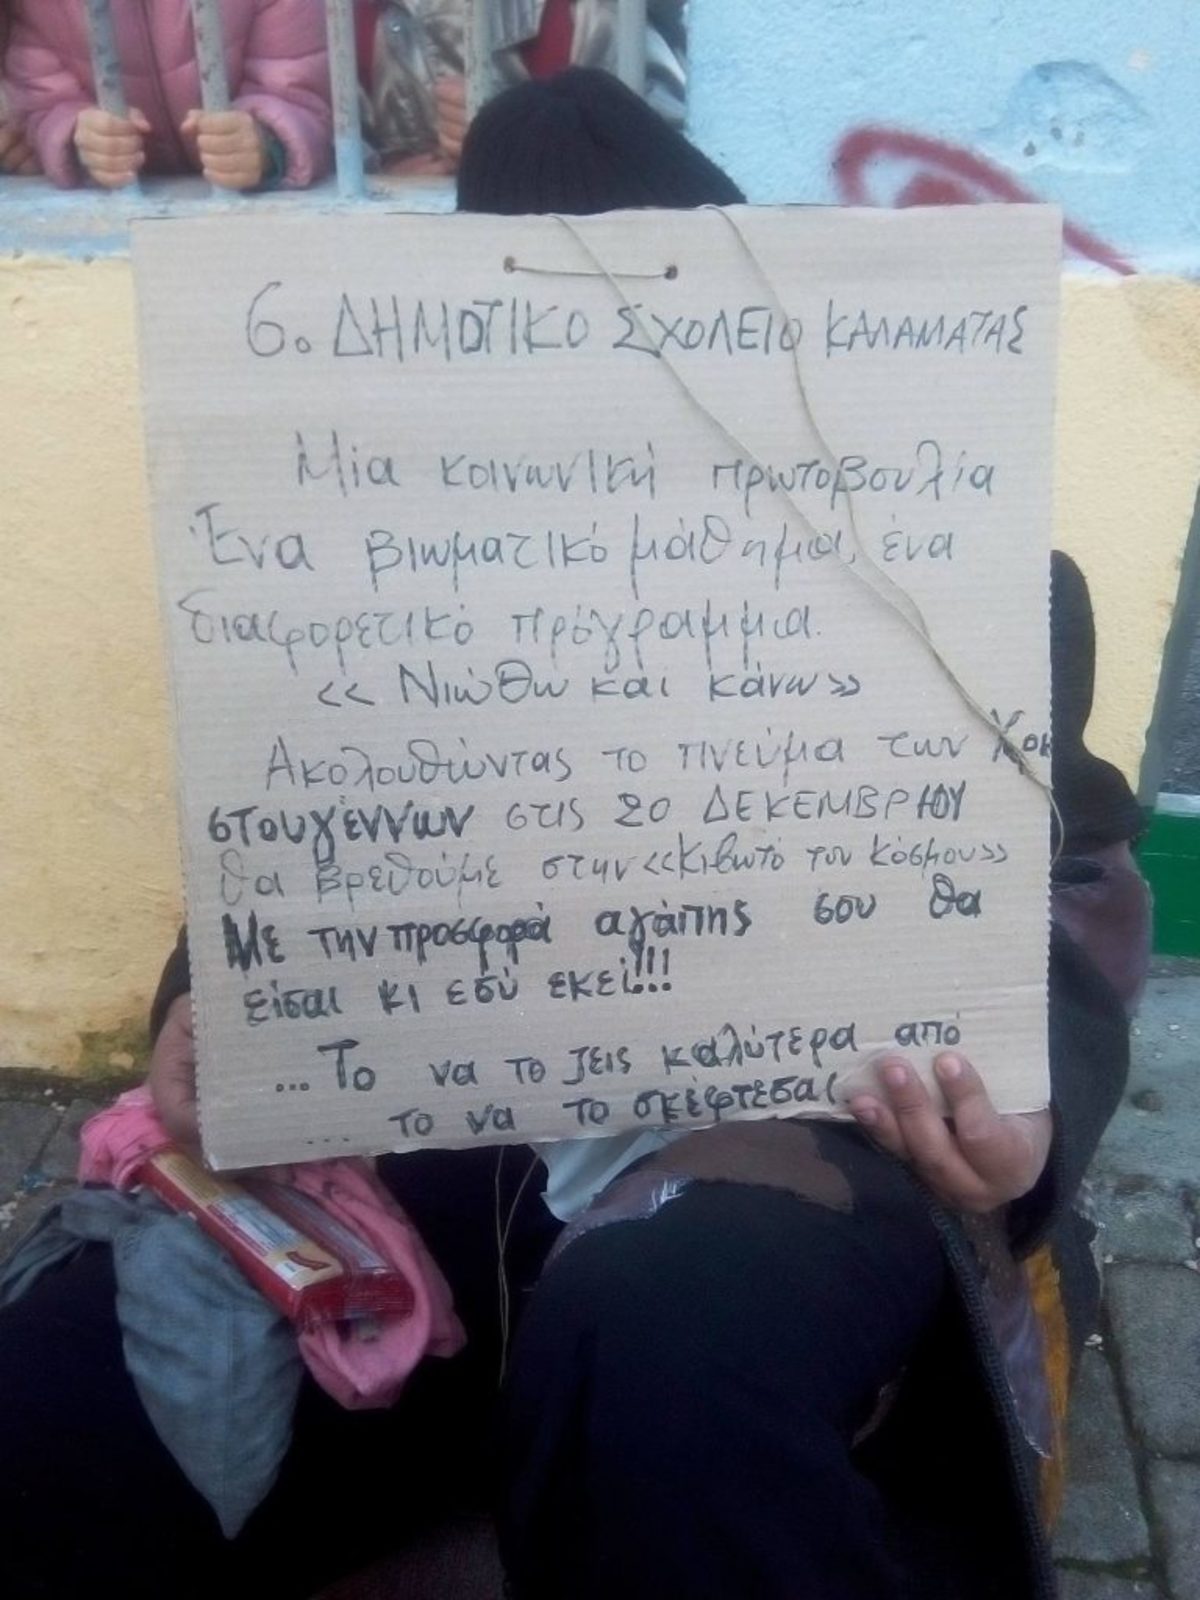 6ο ΔΗΜΟΤΙΚΟ ΣΧΟΛΕΙΟ ΚΑΛΑΜΑΤΑΣ
Μία κοινωνική πρωτοβουλία
Ένα βιωματικό μάθημα, ένα
διαφορετικό πρόγραμμα.
<< Νιώθω και κάνω>>
Ακολουθώντας το πνεύμα των
στουγέννων στις 20 ΔΕΚΕΜΒΡΙΟΥ
θα βρεθούμε στην <<Κιβωτό του Κόσμου>>
Με την προσφορά αγάπης σου θα
είσαι κι εσύ εκεί!!!
... Το να το ζεις καλύτερα από
... το να το σκέφτεσαι